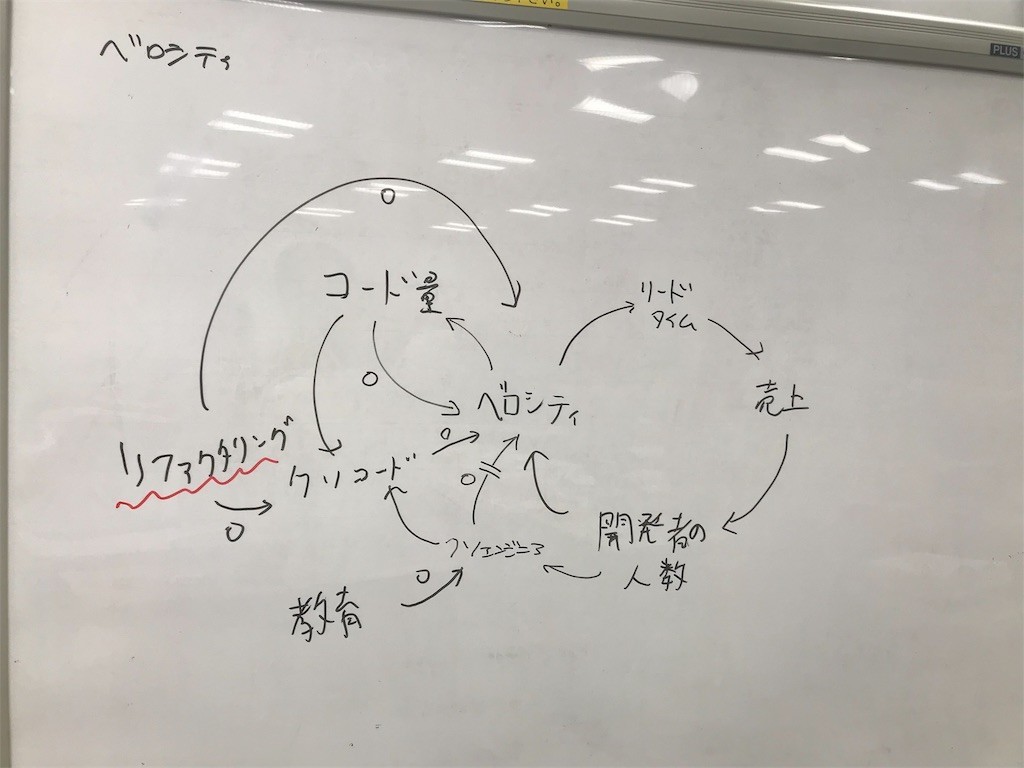 さい。
PLUS
ベロシティ
コード量
リード
タイム
売上
ベロシティ
リファクタリング
クソコード
開発者の
人数
クソエンジニア
教育